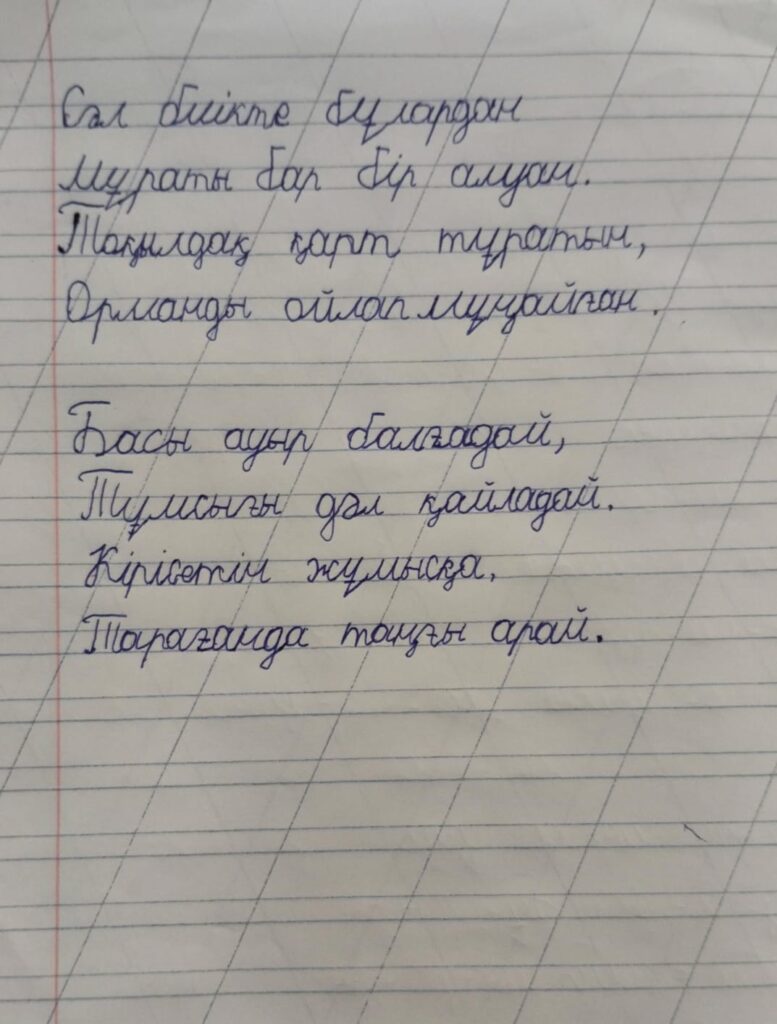 Сәл биікте бұлардан
Мұраты бар бір алуан.
Тоқылдақ қарт тұратын,
Орманды ойлап мұңайған.
Басы ауыр балғадай,
Тұмсығы дәл қайладай.
Кірісетін жұмысқа,
Тарағанда таңғы арай.